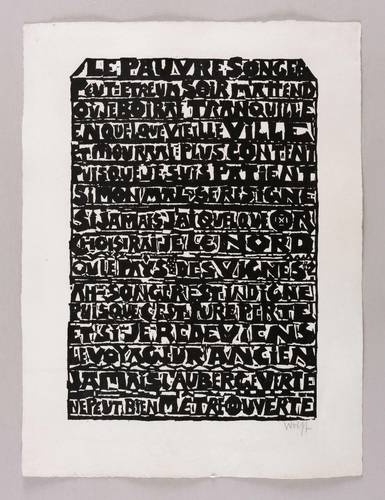 LE PAUVRE SONGE
PEUT-ETRE UM SOIR M'ATTEND
OU JE BOIRAI TRANQUILLE
EN QUELQUE VIEILLE VILLE
ET MOURRAI PLUS CONTENT
PUISQUE JE SUIS PATIENT
SI MON MAL SE RESIGNE
SI JAMAIS J'AI QUELQUE OR
CHOISIRAI JE LE NORD
OU LE PAYS DES VIGNES
AH SONGER EST INDIGNE
PUISQUE C'EST PURE PERTE
ET SI JE REDEVIENS
LE VOYAGEUR ANCIEN
JAMAIS L'AUBERGE VERTE
NE PEUT BIEN M'ETRE OUVERTE